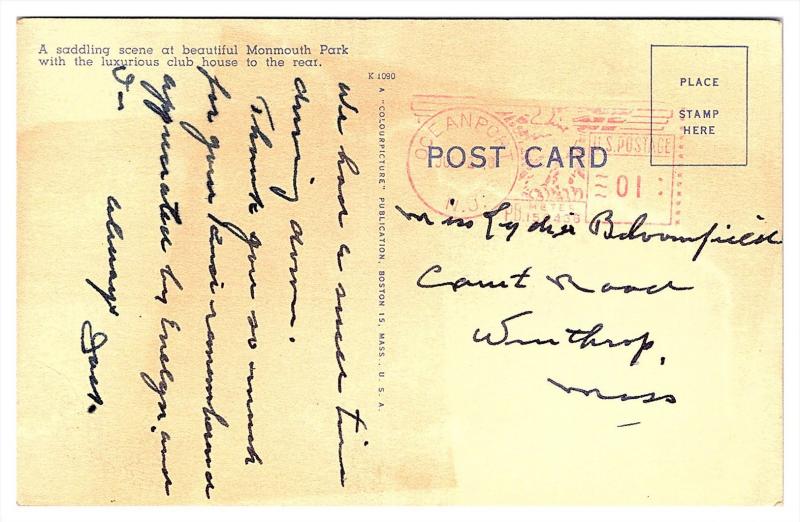 A saddling scene at beautiful Monmouth Park
with the luxurious club house to the rear.
K 1090
A "COLOURPICTURE" PUBLICATION, BOSTON 15, MASS., U. S. A.
We had a swell time
driving down.
Thank you so much
for your kind remembrance
appreciated by Evelyn and
Always
Jack.
POST CARD
PLACE
STAMP
HERE
OCEANPORT
N.J.
U.S. POSTAGE
01
METER
P.B.
Miss Lydia Bloomfield
Court Road
Winthrop,
Mass